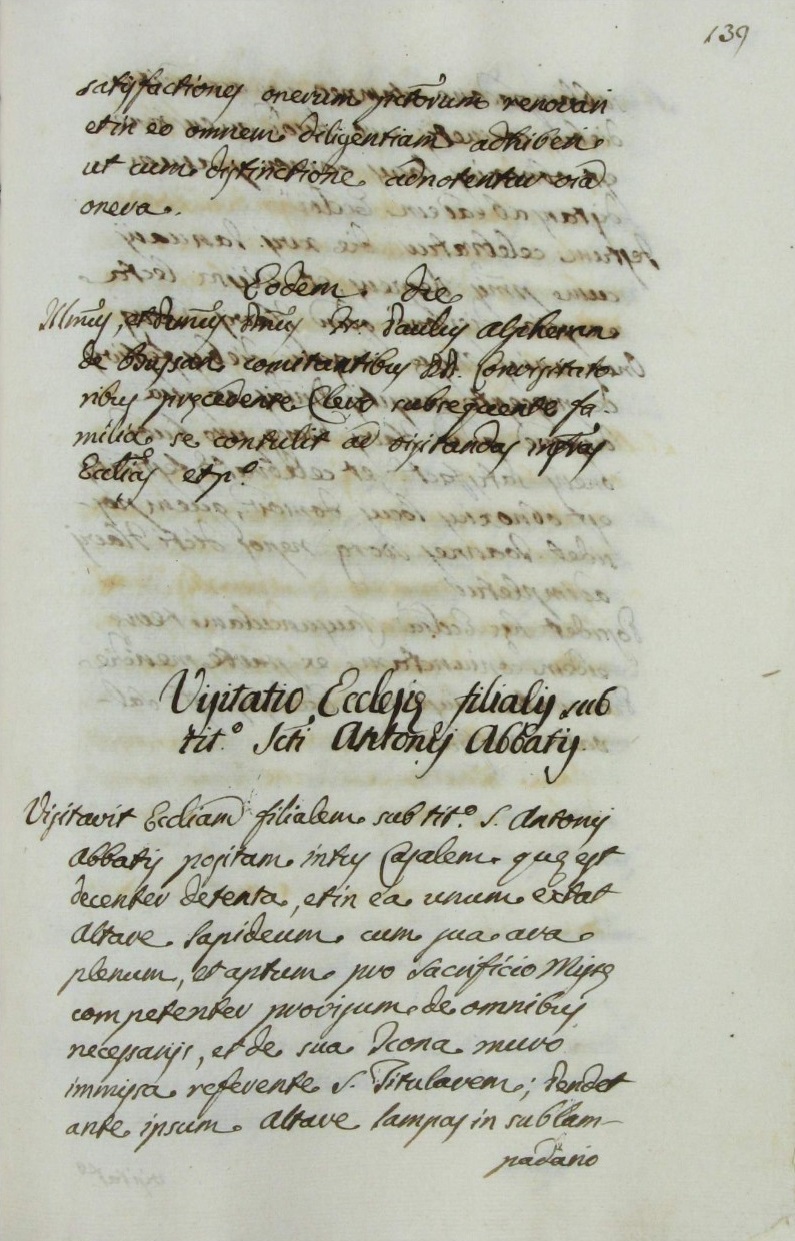 139
satisfactiones onerum pictorum renovari
et in eo omnem diligentiam adhiberi
ut cum distinctione adnotentur oia
onera.
Eodem die
Illmus, et Rmus Dnus Fr. Paulus Alpheran
de Bussan comitantibus DD. Convisitato
ribus precedente Clero subsequente fa-
milia se contulit ad visitandas infras
Ecclias et po
Visitatio Ecclesie filialis sub
tit.o Scti Antonij Abbatis
Visitavit Eccliam filialem sub tit.o S. Antonij
Abbatis positam intus Casalem que est
decenter detenta, et in ea unum extat
Altare lapideum cum sua ara
plenum, et aptum pro sacrificio Misse
competenter provisum de omnibus
necessarijs, et de sua Icona muro
immissa referente S. Titularem; pendet
ante ipsum Altare lampas in sub lam-
padario